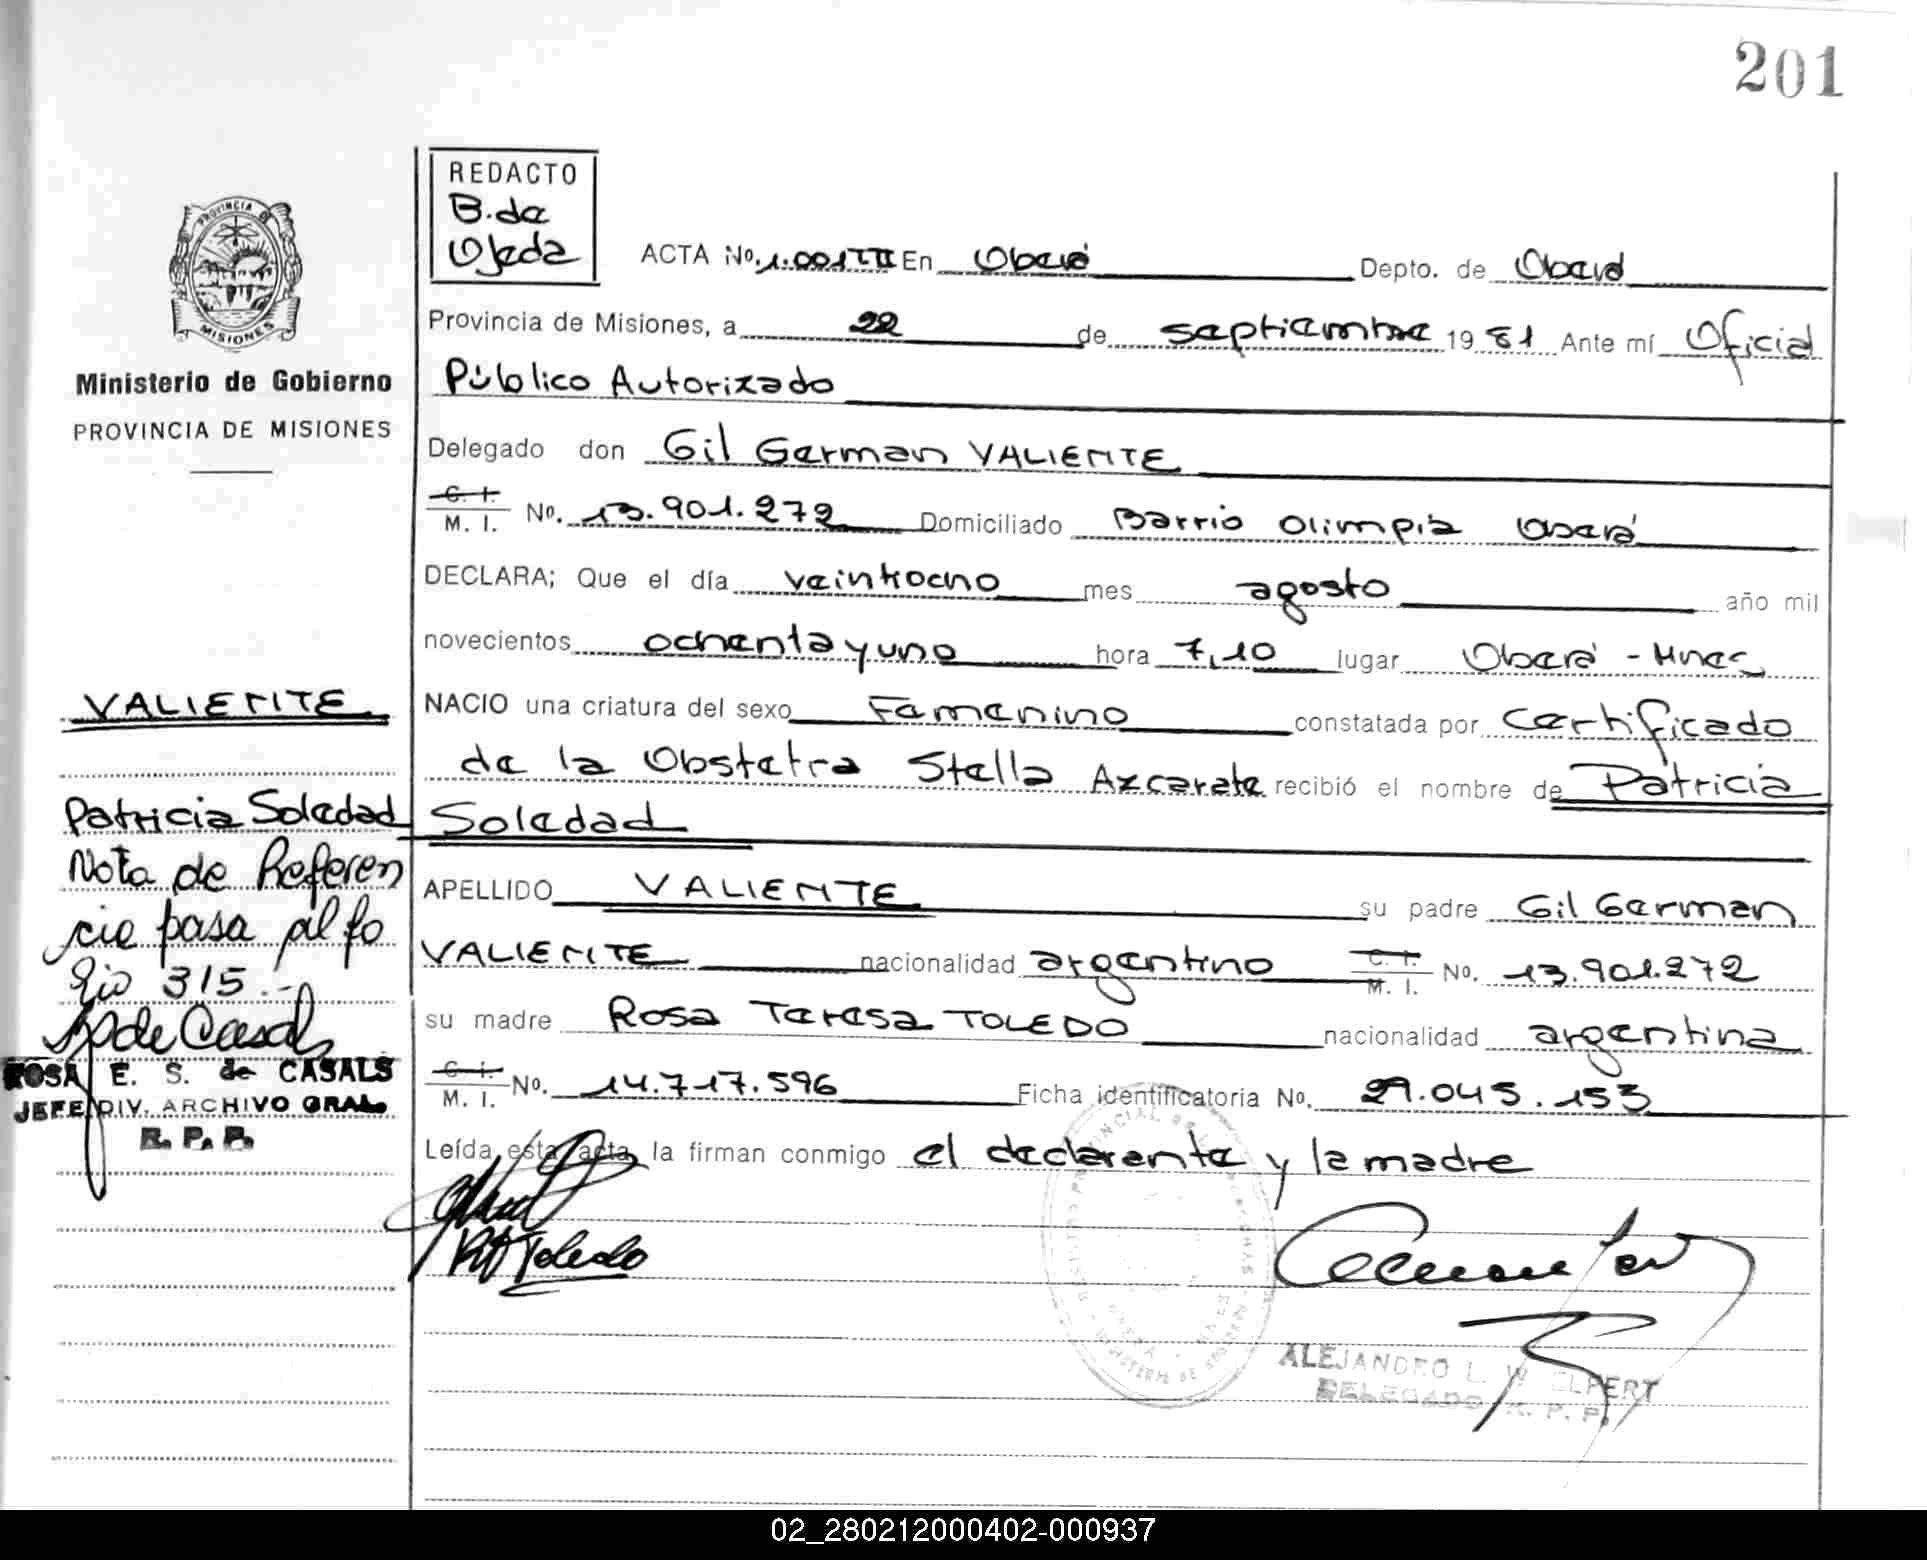 201
PROVINCIA DE
MISIONES
Ministerio de Gobierno
PROVINCIA DE MISIONES
REDACTO
B. de
Ojeda
ACTA No. 1.001 III En Oberá Depto. de Oberá
Provincia de Misiones, a 22 de septiembre 1981 Ante mí Oficial
Público Autorizado
Delegado don Gil German VALIENTE
C. I.
M. I. No. 13.901.272 Domiciliado Barrio Olimpia Oberá
DECLARA; Que el día veintiocho mes agosto año mil
novecientos ochenta y uno hora 7,10 lugar Oberá - Mnes
NACIO una criatura del sexo Femenino constatada por certificado
de la Obstetra Stella Azcarate recibió el nombre de Patricia
Soledad
APELLIDO VALIENTE su padre Gil German
VALIENTE nacionalidad argentino C. I. M. I. No. 13.901.272
su madre Rosa Teresa TOLEDO nacionalidad argentina
C. I.
M. I. No. 14.717.596 Ficha identificatoria No. 29.045.153
Leída esta acta la firman conmigo el declarante y la madre
Toledo
ALEJANDRO L. W ELPERT
DELEGADO R. P. P.
VALIENTE
Patricia Soledad
Nota de Referen
cia pasa al fo
lio 315.-
de Casals
ROSA E. S. de CASALS
JEFE DIV. ARCHIVO GRAL.
R. P. P.
02_280212000402-000937